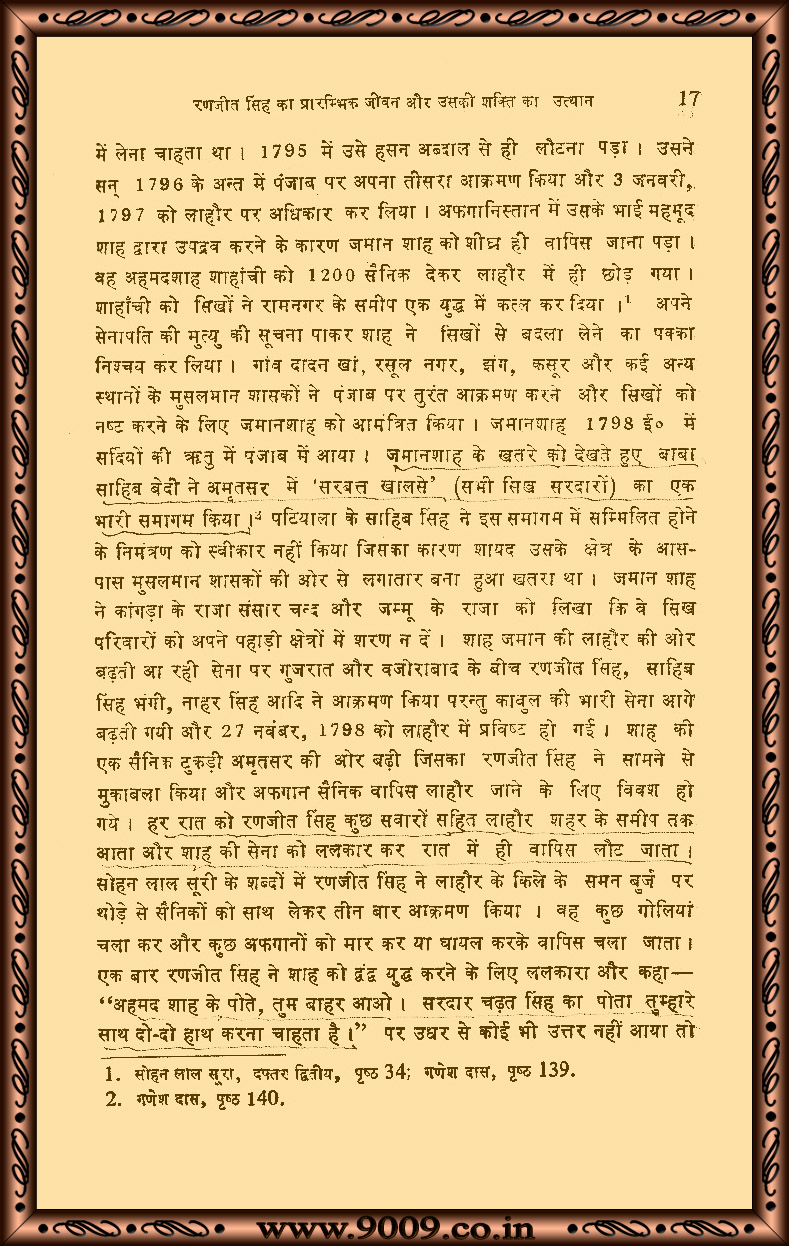 रणजीत सिंह का प्रारम्भिक जीवन और उसकी शक्ति का उत्थान 17
में लेना चाहता था । 1795 में उसे हसन अब्दाल से ही लौटना पड़ा । उसने
सन् 1796 के अन्त में पंजाब पर अपना तीसरा आक्रमण किया और 3 जनवरी,
1797 को लाहौर पर अधिकार कर लिया । अफगानिस्तान में उसके भाई महमूद
शाह द्वारा उपद्रव करने के कारण जमान शाह को शीघ्र ही वापिस जाना पड़ा ।
वह अहमदशाह शाहांची को 1200 सैनिक देकर लाहौर में ही छोड़ गया ।
शाहाँची को सिखों ने रामनगर के समीप एक युद्ध में कत्ल कर दिया ।¹ अपने
सेनापति की मृत्यु की सूचना पाकर शाह ने सिखों से बदला लेने का पक्का
निश्चय कर लिया । गांव दादन खां, रसूल नगर, झंग, कसूर और कई अन्य
स्थानों के मुसलमान शासकों ने पंजाब पर तुरंत आक्रमण करने और सिखों को
नष्ट करने के लिए जमानशाह को आमंत्रित किया । जमानशाह 1798 ई० में
सर्दियों की ऋतु में पंजाब में आया । जमानशाह के खतरे को देखते हुए बाबा
साहिब बेदी ने अमृतसर में ‘सरबत्त खालसे’ (सभी सिख सरदारों) का एक
भारी समागम किया ।² पटियाला के साहिब सिंह ने इस समागम में सम्मिलित होने
के निमंत्रण को स्वीकार नहीं किया जिसका कारण शायद उसके क्षेत्र के आस-
पास मुसलमान शासकों की ओर से लगातार बना हुआ खतरा था । जमान शाह
ने कांगड़ा के राजा संसार चन्द और जम्मू के राजा को लिखा कि वे सिख
परिवारों को अपने पहाड़ी क्षेत्रों में शरण न दें । शाह जमान की लाहौर की ओर
बढ़ती आ रही सेना पर गुजरात और वजीराबाद के बीच रणजीत सिंह, साहिब
सिंह भंगी, नाहर सिंह आदि ने आक्रमण किया परन्तु काबुल की भारी सेना आगे
बढ़ती गयी और 27 नवंबर, 1798 को लाहौर में प्रविष्ट हो गई । शाह की
एक सैनिक टुकड़ी अमृतसर की ओर बढ़ी जिसका रणजीत सिंह ने सामने से
मुकाबला किया और अफगान सैनिक वापिस लाहौर जाने के लिए विवश हो
गये । हर रात को रणजीत सिंह कुछ सवारों सहित लाहौर शहर के समीप तक
आता और शाह की सेना को ललकार कर रात में ही वापिस लौट जाता ।
सोहन लाल सूरी के शब्दों में रणजीत सिंह ने लाहौर के किले के समन बुर्ज पर
थोड़े से सैनिकों को साथ लेकर तीन बार आक्रमण किया । वह कुछ गोलियां
चला कर और कुछ अफगानों को मार कर या घायल करके वापिस चला जाता ।
एक बार रणजीत सिंह ने शाह को द्वंद्व युद्ध करने के लिए ललकारा और कहा—
“अहमद शाह के पोते, तुम बाहर आओ । सरदार चढ़त सिंह का पोता तुम्हारे
साथ दो-दो हाथ करना चाहता है ।” पर उधर से कोई भी उत्तर नहीं आया तो
1. सोहन लाल सूरा, दफ्तर द्वितीय, पृष्ठ 34; गणेश दास, पृष्ठ 139.
2. गणेश दास, पृष्ठ 140.
www.9009.co.in